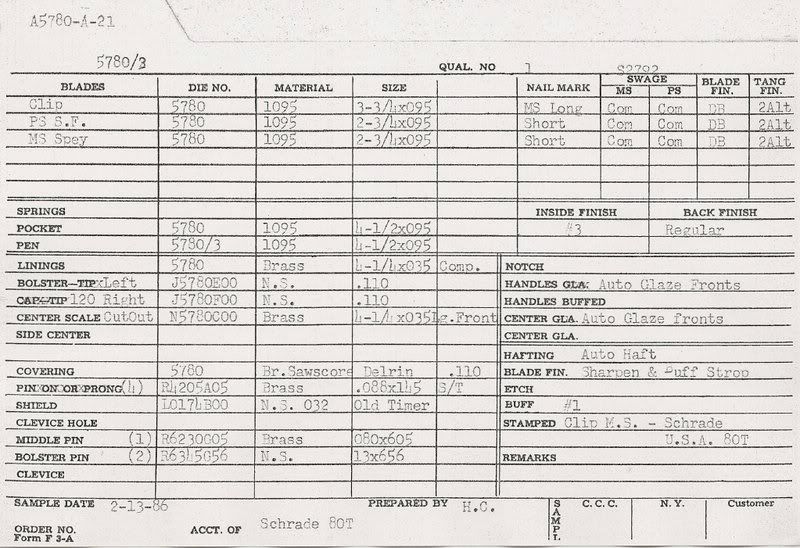 A5780-A-21
5780/3 QUAL. NO 1 S2792
BLADES DIE NO. MATERIAL SIZE NAIL MARK SWAGE MS PS BLADE FIN. TANG FIN.
Clip 5780 1095 3-3/4x095 MS Long Com Com DB 2Alt
PS S.F. 5780 1095 2-3/4x095 Short Com Com DB 2Alt
MS Spey 5780 1095 2-3/4x095 Short Com Com DB 2Alt
SPRINGS INSIDE FINISH BACK FINISH
POCKET 5780 1095 4-1/2x095 #3 Regular
PEN 5780/3 1095 4-1/2x095
LININGS 5780 Brass 4-1/4x035 Comp. NOTCH
BOLSTER-TIP Left J5780E00 N.S. .110 HANDLES GLA. Auto Glaze Fronts
CAP-TIP 120 Right J5780F00 N.S. .110 HANDLES BUFFED
CENTER SCALE CutOut N5780C00 Brass 4-1/4x035 Lg.Front CENTER GLA. Auto Glaze fronts
SIDE CENTER CENTER GLA.
HAFTING Auto Haft
COVERING 5780 Br.Sawscore Delrin .110 BLADE FIN. Sharpen & Buff Strop
PIN ON OR PRONG (4) R4205A05 Brass .088x145 S/T ETCH
SHIELD L0174B00 N.S. 032 Old Timer BUFF #1
CLEVICE HOLE STAMPED Clip M.S. - Schrade
MIDDLE PIN (1) R6230G05 Brass 080x605 U.S.A. 80T
BOLSTER PIN (2) R6345G56 N.S. 13x656 REMARKS
CLEVICE
SAMPLE DATE 2-13-86 PREPARED BY H.C. SAMPL C.C.C. N.Y. Customer
ORDER NO. ACCT. OF Schrade 80T
Form F 3-A